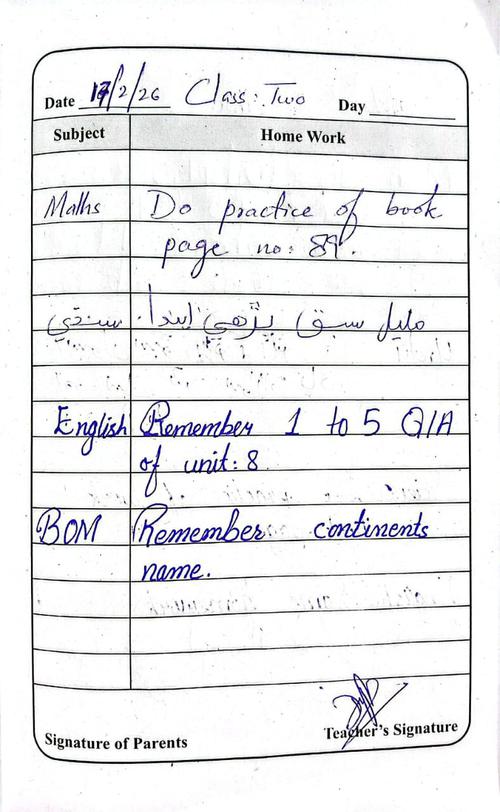 Date 17/2/26 Class: Two Day
Subject Home Work
Maths Do practice of book
page no: 89.
سنڌي مليل سبق پڙهي ايندا.
English Remember 1 to 5 Q/A
of unit: 8
BOM Remember continents
name.
Signature of Parents Teacher's Signature